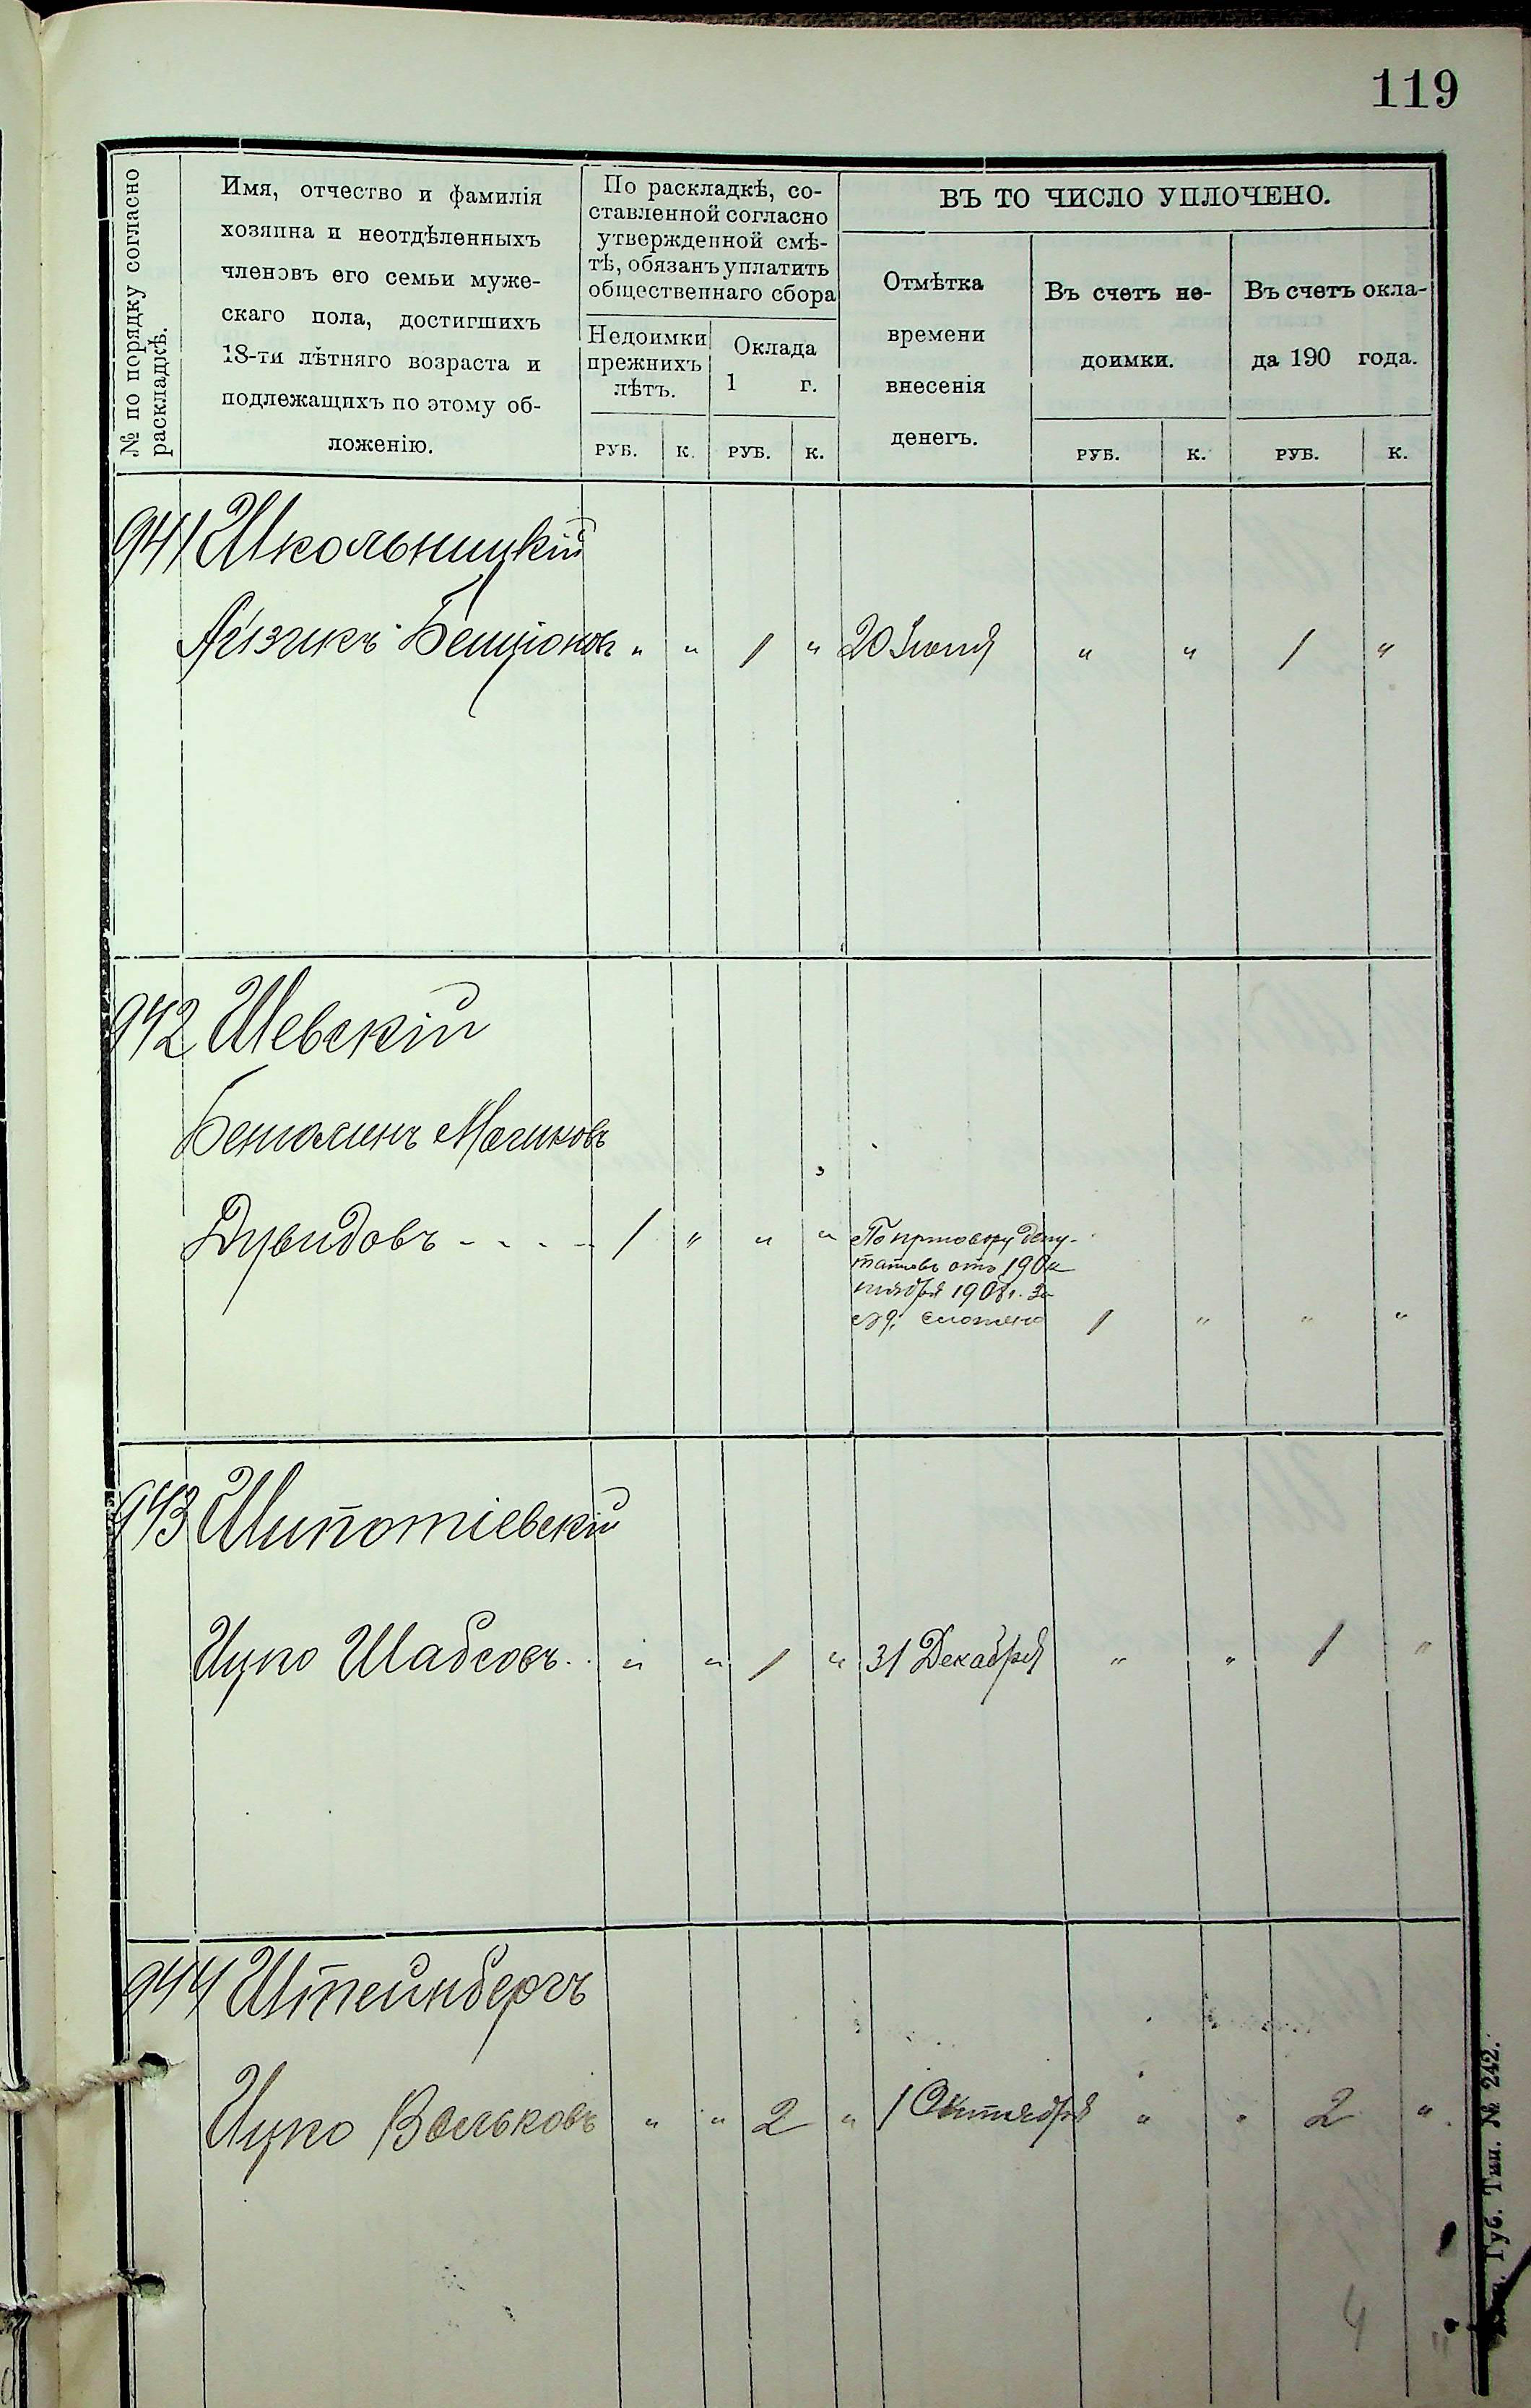 119
№ по порядку согласно
раскладкѣ.
Имя, отчество и фамилія
хозяина и неотдѣленныхъ
членовъ его семьи муже-
скаго пола, достигшихъ
18-ти лѣтняго возраста и
подлежащихъ по этому об-
ложенію.
По раскладкѣ, со-
ставленной согласно
утвержденной смѣ-
тѣ, обязанъ уплатить
общественнаго сбора
Недоимки
прежнихъ
лѣтъ.
Оклада
1 г.
ВЪ ТО ЧИСЛО УПЛОЧЕНО.
Отмѣтка
времени
внесенія
денегъ.
Въ счетъ не-
доимки.
Въ счетъ окла-
да 190 года.
РУБ. К. РУБ. К. РУБ. К. РУБ. К.
941 Школьницкій
Айзикъ Бенціоновъ " " 1 " 20 Іюня " " 1 "
942 Шевскій
Беніаминъ
Дувидовъ - - - - 1 " " " По приговору депу-
татовъ отъ 19 Ок
тября 1908 г. за
№ 9, сложено 1 " " "
943 Шипотіевскій
Ицко Шабсовъ " " 1 " 31 Декабря " " 1 "
944 Штейнбергъ
Ицко Вольковъ " " 2 " 1 Октября " " 2 "
4 "
Губ. Тип. № 242.